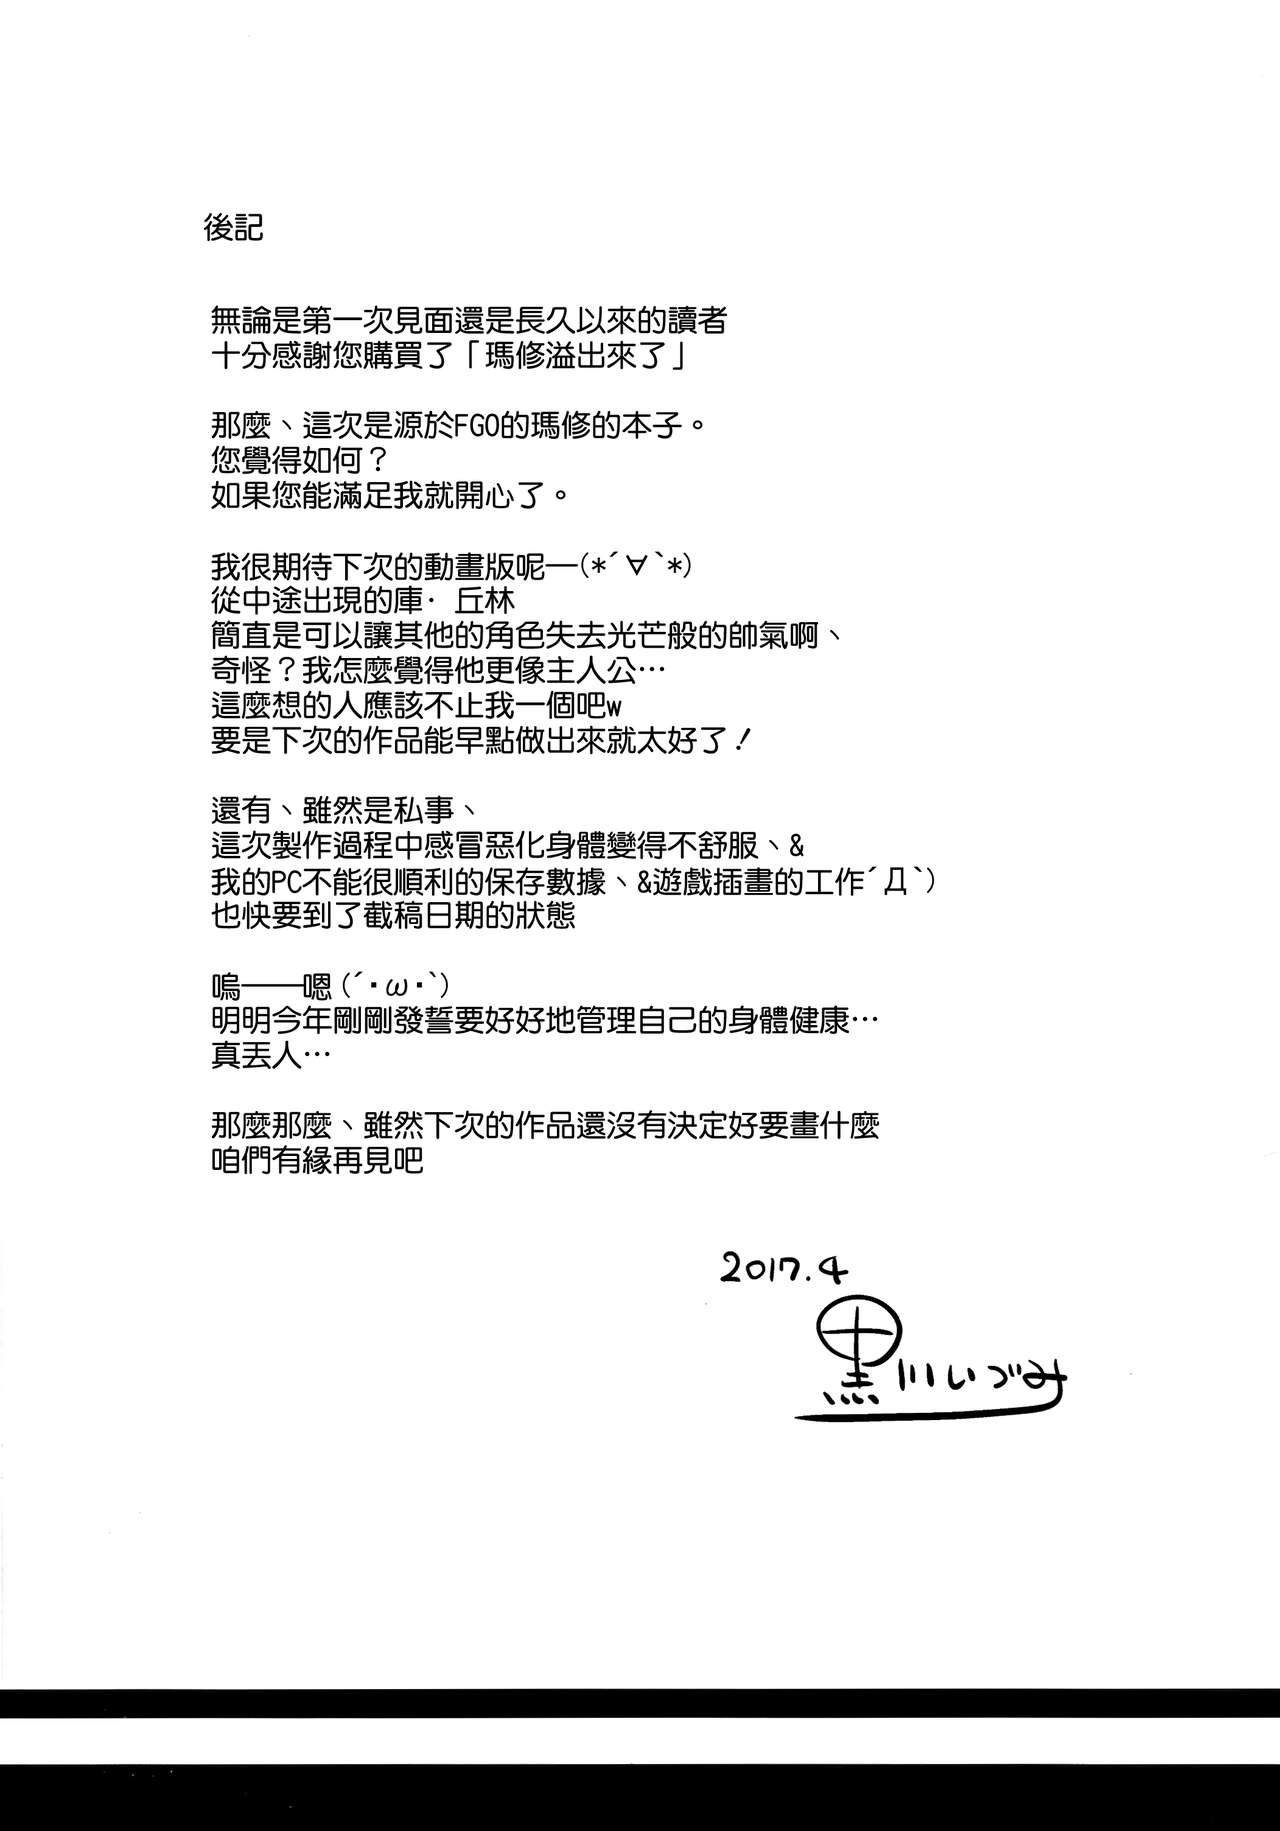 後記
無論是第一次見面還是長久以來的讀者
十分感謝您購買了「瑪修溢出來了」
那麼、這次是源於FGO的瑪修的本子。
您覺得如何？
如果您能滿足我就開心了。
我很期待下次的動畫版呢—(*´∀`*)
從中途出現的庫·丘林
簡直是可以讓其他的角色失去光芒般的帥氣啊、
奇怪？我怎麼覺得他更像主人公…
這麼想的人應該不止我一個吧w
要是下次的作品能早點做出來就太好了！
還有、雖然是私事、
這次製作過程中感冒惡化身體變得不舒服、&
我的PC不能很順利的保存數據、&遊戲插畫的工作´Д`)
也快要到了截稿日期的狀態
嗚——嗯(´･ω･`)
明明今年剛剛發誓要好好地管理自己的身體健康…
真丟人…
那麼那麼、雖然下次的作品還沒有決定好要畫什麼
咱們有緣再見吧
2017.4
黒川いづみ